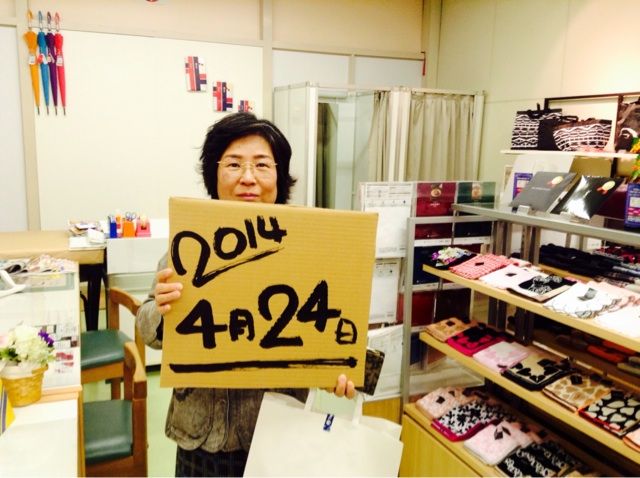 2014
4月24日